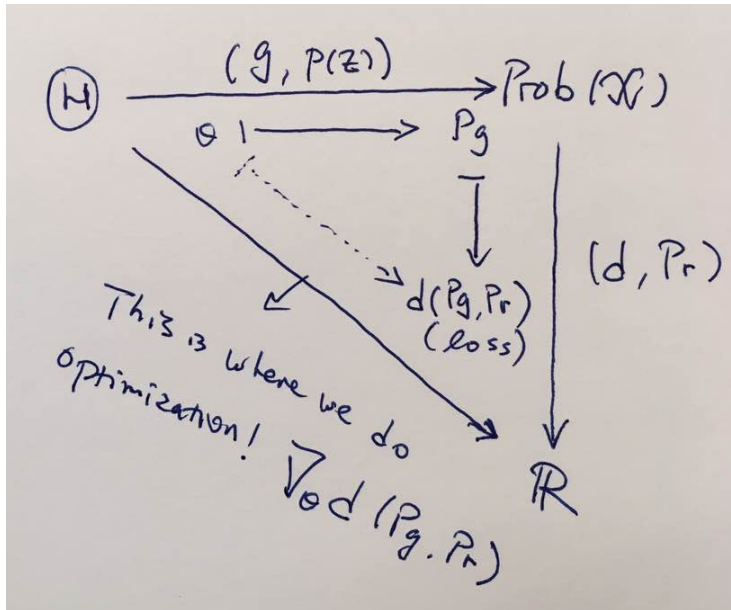 (g, p(z))
Θ Prob(𝒳)
θ ↦ Pg
(d, Pr)
d(Pg, Pr)
(loss)
This is where we do
optimization!
ℝ
∇θ d(Pg. Pr)